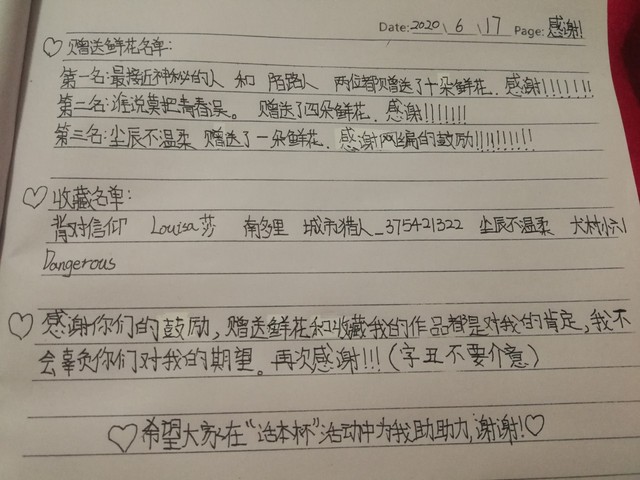 Date: 2020 \ 6 \ 17 Page: 感谢!
♡ 赠送鲜花名单:
第一名:最接近神秘的人 和 陌路人 两位都赠送了十朵鲜花. 感谢!!!!!!!
第二名:谁说莫把青春误。 赠送了四朵鲜花. 感谢!!!!!!!
第三名:尘辰不温柔 赠送了一朵鲜花. 感谢网编的鼓励!!!!!!!!!!
♡ 收藏名单:
背对信仰 Louisa莎 南多里 城市猎人_375421322 尘辰不温柔 犬村小六
Dangerous
♡ 感谢你们的鼓励,赠送鲜花和收藏我的作品都是对我的肯定,我不
会辜负你们对我的期望。再次感谢!!!(字丑不要介意)
♡希望大家在“话本杯”活动中为我助助力,谢谢!♡